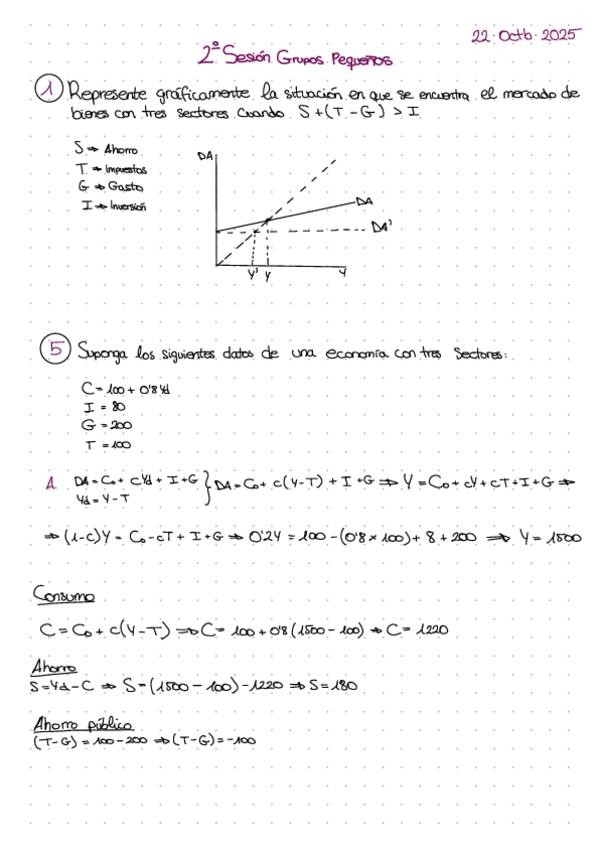 22. Octb. 2025
2º Sesión Grupos Pequeños
1 Represente gráficamente la situación en que se encuentra el mercado de
bienes con tres sectores cuando S+(T-G) > I
S → Ahorro
T → Impuestos
G → Gasto
I → Inversión
DA
DA
DA'
Y' Y Y
5 Suponga los siguientes datos de una economía con tres sectores:
C = 100 + 0'8 Yd
I = 80
G = 200
T = 100
1. DA = Co + cYd + I + G } DA = Co + c(Y-T) + I + G ⇒ Y = Co + cY + cT + I + G ⇒
Yd = Y - T
⇒ (1-c)Y = Co - cT + I + G ⇒ 0'2Y = 100 - (0'8 × 100) + 8 + 200 ⇒ Y = 1500
Consumo
C = Co + c(Y-T) ⇒ C = 100 + 0'8 (1500 - 100) ⇒ C = 1220
Ahorro
S = Yd - C ⇒ S = (1500 - 100) - 1220 ⇒ S = 180
Ahorro público
(T-G) = 100 - 200 ⇒ (T-G) = -100